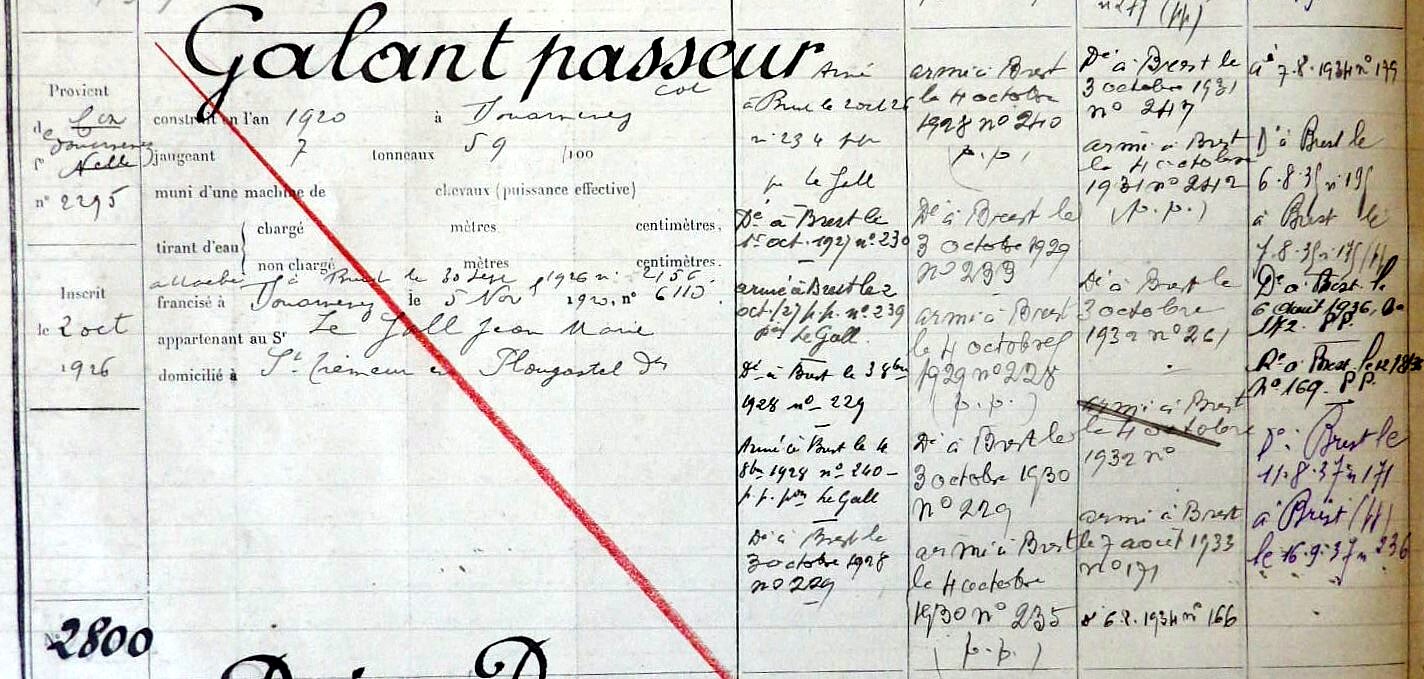 n° 277 (pp)
Galant passeur
Provient
de
Douarnenez
f° Nelle
n° 2295
Inscrit
le 2 oct
1926
2800
cot
construit en l'an 1920 à Douarnenez
jaugeant 7 tonneaux 59 /100
muni d'une machine de chevaux (puissance effective)
tirant d'eau
chargé mètres centimètres.
non chargé mètres centimètres.
attaché à Brest le 30 Sept 1926 n° 2156.
francisé à Douarnenez le 5 Nov 1920, n° 6115.
appartenant au Sr Le Gall Jean Marie
domicilié à St Trémeur en Plougastel Das
Armé
à Brest le 2 oct 26
n° 234 pp
pr Le Gall
Dé à Brest le
1er oct. 1927 n° 230
armé à Brest le 2
oct. (27) p.p. n° 239
par Le Gall.
Dé à Brest le 3 8bre
1928 n° 229
Armé à Brest le 4
8bre 1928 n° 240 –
p.p. par Le Gall
Dé à Brest le
3 octobre 1928
n° 229
armé à Brest
le 4 octobre
1928 n° 240
(p.p.)
Dé à Brest le
3 octobre 1929
n° 233
armé à Brest
le 4 octobre
1929 n° 228
(p.p.)
Dé à Brest le
3 octobre 1930
n° 229
armé à Brest
le 4 octobre
1930 n° 235
(p.p.)
Dé à Brest le
3 octobre 1931
n° 247
armé à Brest
le 4 octobre
1931 n° 242
(p.p.)
Dé à Brest le
3 octobre
1932 n° 261
armé à Brest
le 4 octobre
1932 n°
armé à Brest
le 7 août 1933
n° 171
d 6.8.1934 n° 166
aé 7.8.1934 n° 179
Dé à Brest le
6.8.35 n° 195
à Brest le
7.8.35 n° 175 (pp)
Dé à Brest le
6 Août 1936, n°
172. PP.
Ré à Brest le
n° 169. PP.
Dé Brest le
11.8.37 n° 171
à Brest (pp)
le 16.9.37 n° 236